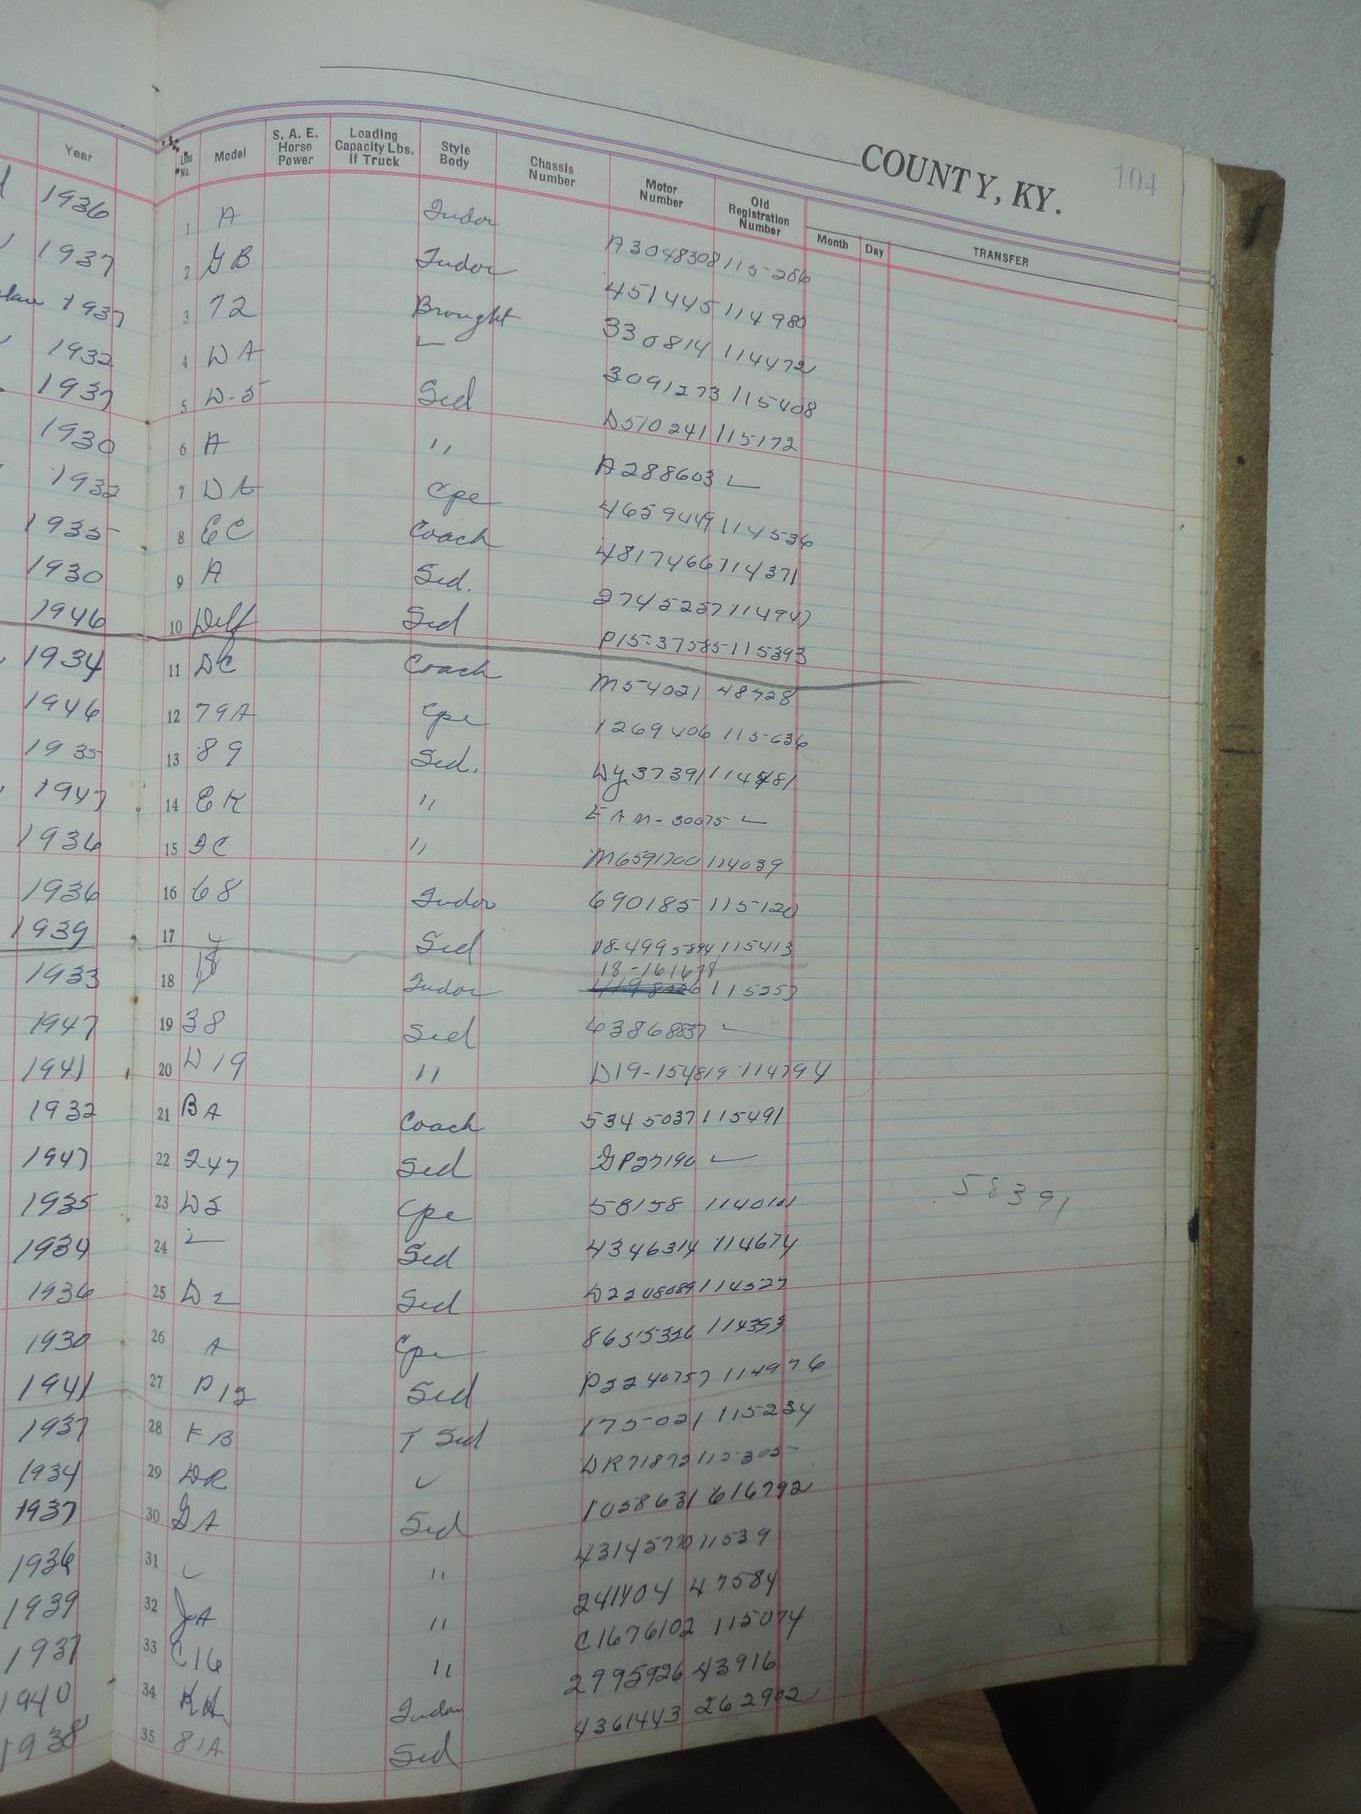 COUNTY, KY. 104
Year Line No. Model S. A. E. Horse Power Loading Capacity Lbs. if Truck Style Body Chassis Number Motor Number Old Registration Number Month Day TRANSFER
1936 1 A Tudor A3048308 115-286
1937 2 GB Tudor 451445 114980
1937 3 72 Brought 330814 114472
1932 4 DA ✓ 3091273 115408
1937 5 D-5 Sed D510241 115172
1930 6 A " A288603 ✓
1932 7 DA Cpe 4659449 114536
1935 8 EC Coach 4817466 114371
1930 9 A Sed. 2745257 114947
1946 10 Sed P15-37585 115393
1934 11 DC Coach M54021 48728
1946 12 79A Cpe 1269406 115-636
1935 13 89 Sed. 37391
1947 14 EK " EAM-30675 ✓
1936 15 FC " M6591700 114039
1936 16 68 Tudor 690185 115-120
1939 17 Sed 18-499 115413
18-161678
1933 18 Tudor 115257
1947 19 38 Sed 63868837
1941 20 D19 " D19-154819 114794
1932 21 BA Coach 5345037 115491
1947 22 247 Sed GP27190 ✓
1935 23 D5 Cpe 58158 58391
1934 24 ✓ Sed 4346314 114674
1936 25 D2 Sed D2208089 114527
1930 26 A Cpe 114353
1941 27 P12 Sed P2240757 114976
1937 28 FB T Sed 175-021 115234
1934 29 DR ✓ DR71872 115-305
1937 30 GA Sed 1058631 616792
1936 31 ✓ " 43145770 11539
1939 32 JA " 241404 47584
1937 33 C16 " C1676102 115074
1940 34 KA Tudor 2995926 43916
1938 35 81A Sed 4361443 262902